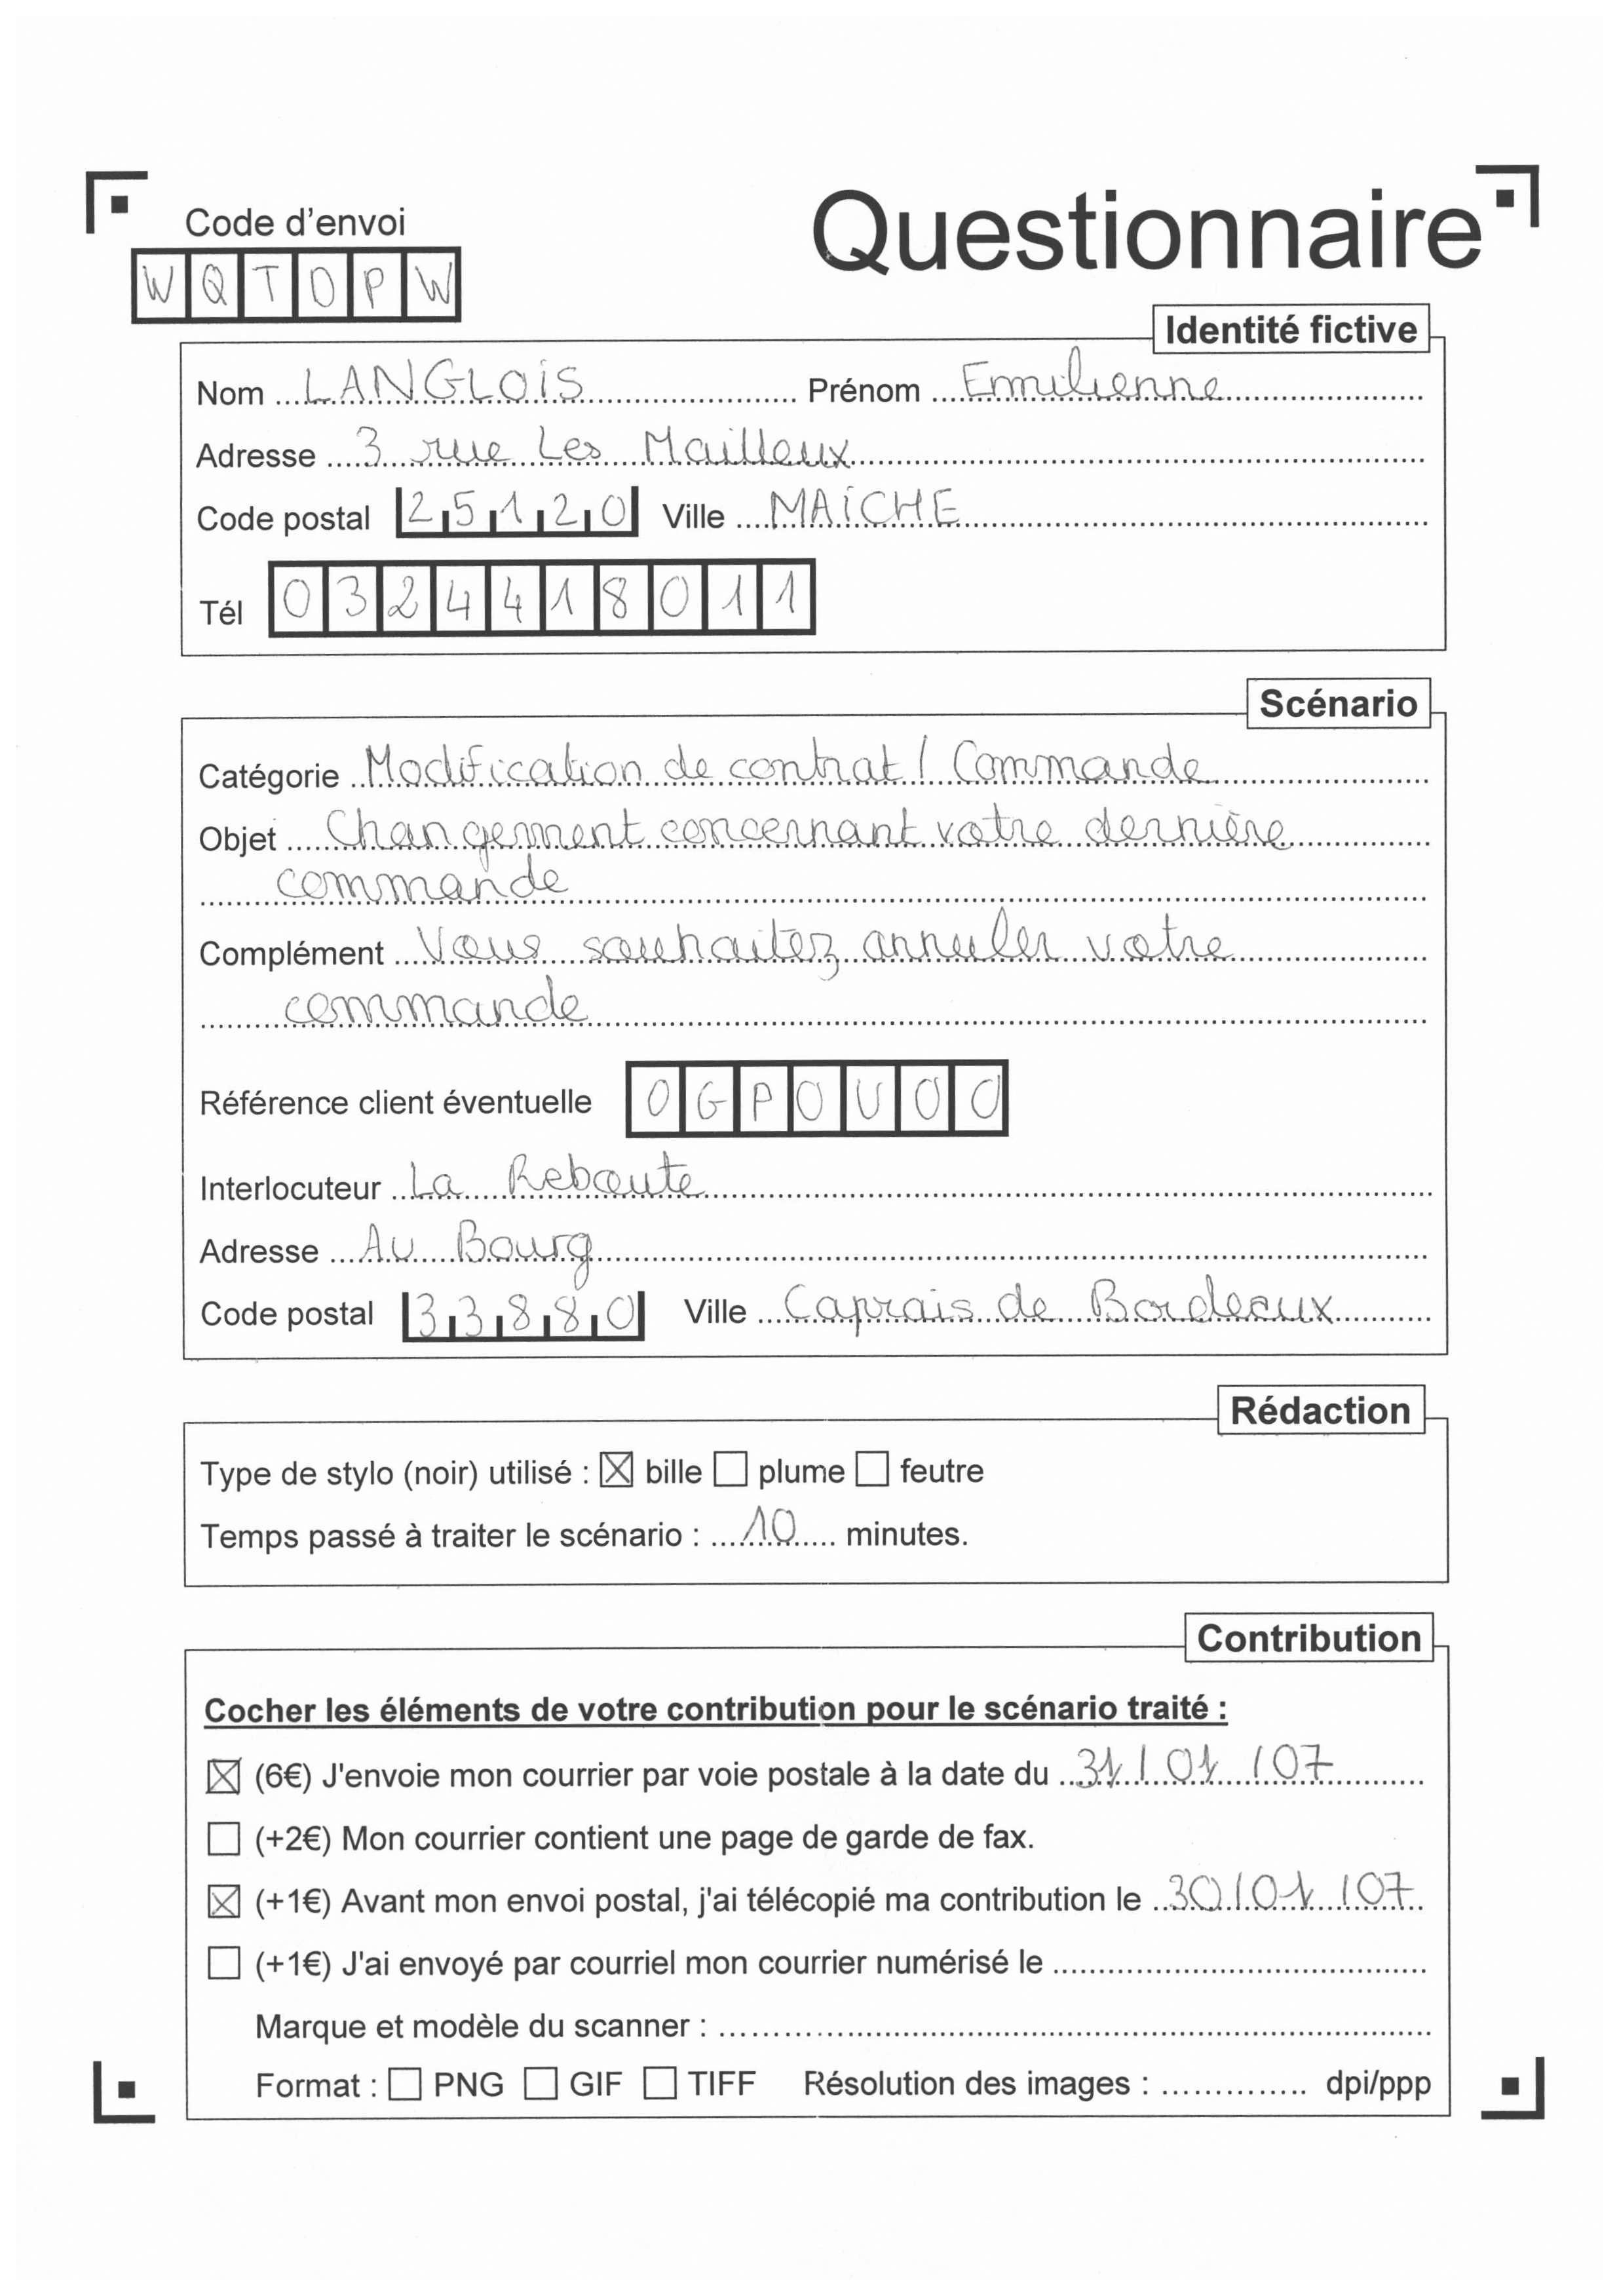 Questionnaire
Code d'envoi
WQTDPW
Identité fictive
Nom LANGLOIS Prénom Emilienne
Adresse 3 rue Les Mailleux
Code postal 25120 Ville MAÎCHE
Tél 0324418011
Scénario
Catégorie Modification de contrat / Commande
Objet Changement concernant votre dernière
commande
Complément Vous souhaitez annuler votre
commande
Référence client éventuelle OGPOUOO
Interlocuteur La Reboute
Adresse Au Bourg
Code postal 33880 Ville Caprais de Bordeaux
Rédaction
Type de stylo (noir) utilisé : ☒ bille ☐ plume ☐ feutre
Temps passé à traiter le scénario : 10 minutes.
Contribution
Cocher les éléments de votre contribution pour le scénario traité :
☒ (6€) J'envoie mon courrier par voie postale à la date du 31/01/07
☐ (+2€) Mon courrier contient une page de garde de fax.
☒ (+1€) Avant mon envoi postal, j'ai télécopié ma contribution le 30/01/07
☐ (+1€) J'ai envoyé par courriel mon courrier numérisé le
Marque et modèle du scanner :
Format : ☐ PNG ☐ GIF ☐ TIFF Résolution des images : dpi/ppp